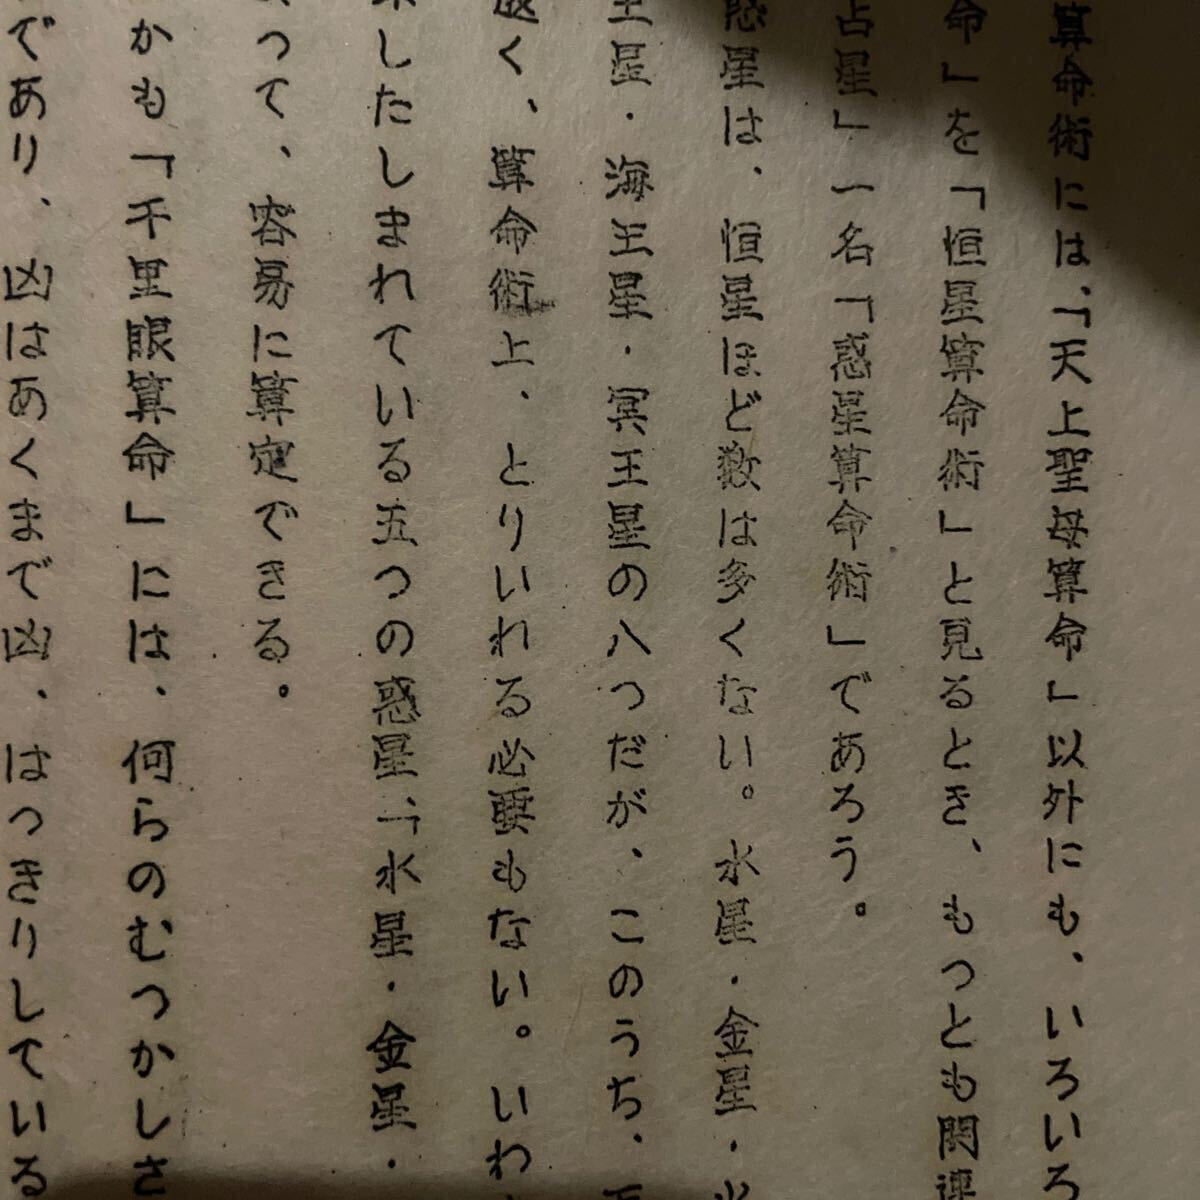 算命術には、「天上聖母算命」以外にも、いろいろ
命」を「恒星算命術」と見るとき、もっとも関連
占星」一名「惑星算命術」であろう。
惑星は、恒星ほど数は多くない。水星・金星・火
王星・海王星・冥王星の八つだが、このうち、
遅く、算命術上、とりいれる必要もない。いわ
したしまれている五つの惑星、「水星・金星・
って、容易に算定できる。
かも「千里眼算命」には、何らのむつかしさ
であり、凶はあくまで凶、はっきりしている